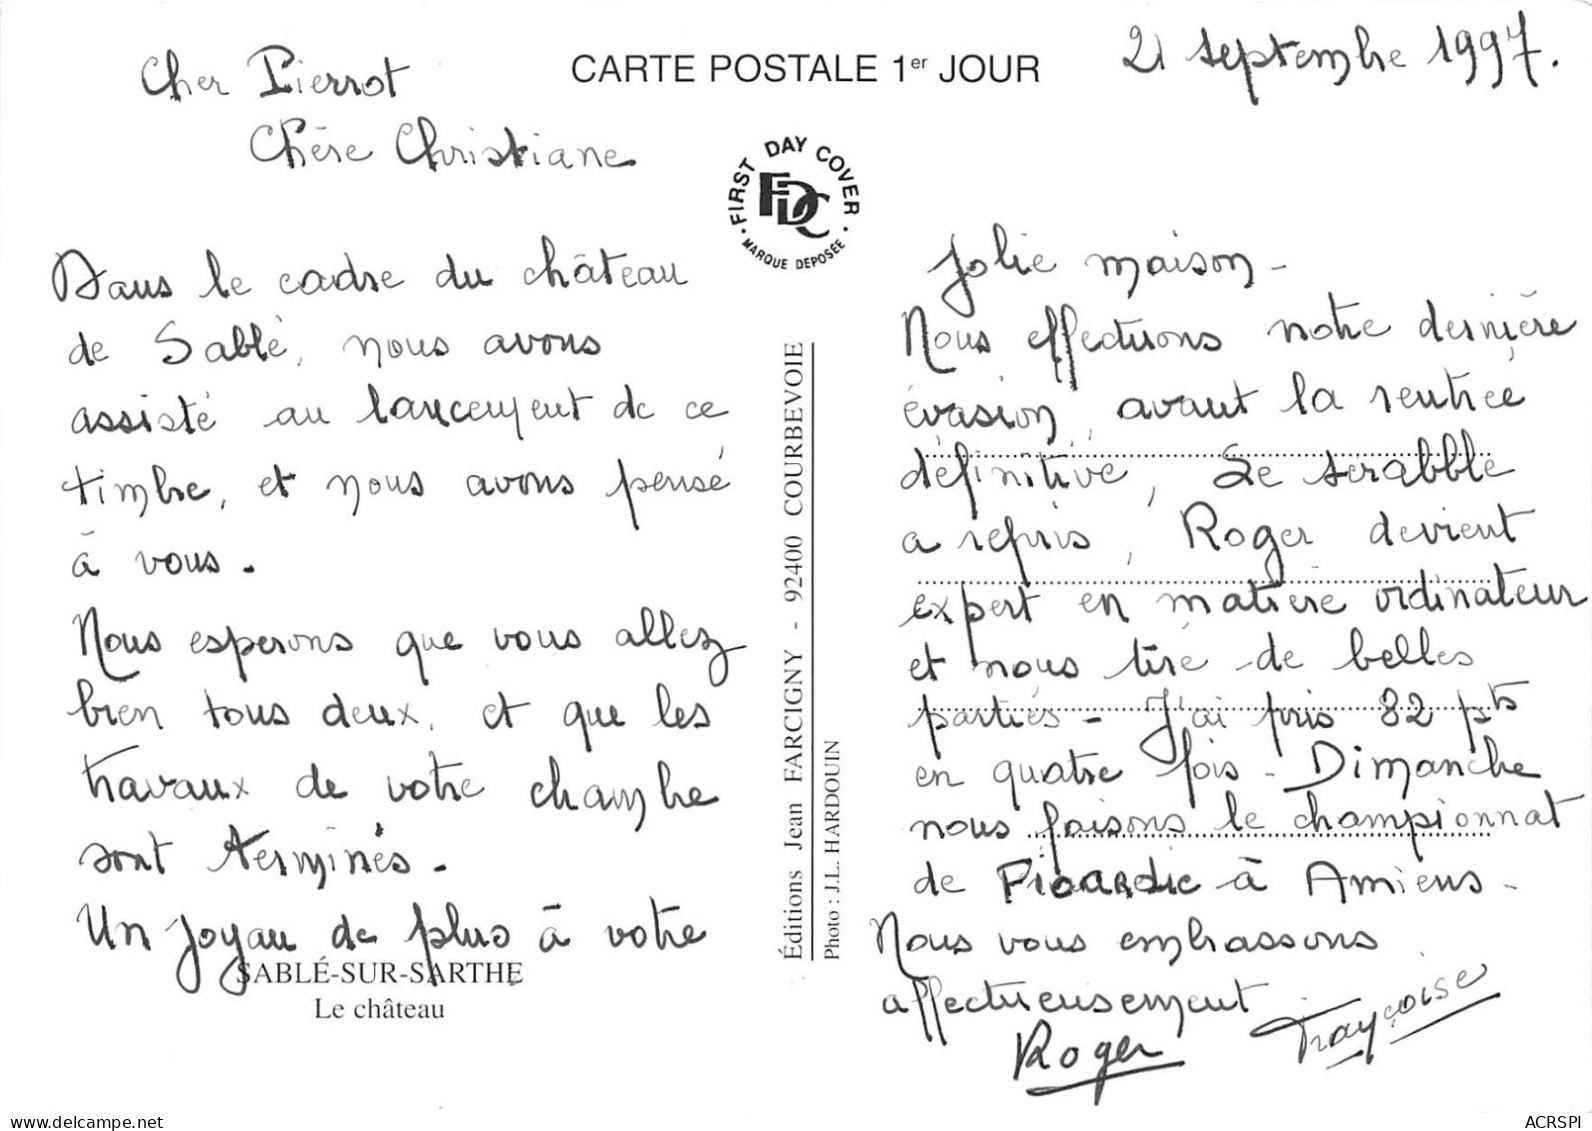 CARTE POSTALE 1er JOUR
21 septembre 1997.
Cher Pierrot
Chère Christiane
FIRST DAY COVER
FDC
MARQUE DEPOSÉE
Dans le cadre du château
de Sablé, nous avons
assisté au lancement de ce
timbre, et nous avons pensé
à vous.
Nous esperons que vous allez
bien tous deux, et que les
travaux de votre chambre
sont terminés -
Un joyau de plus à votre
SABLÉ-SUR-SARTHE
Le château
Éditions Jean FARCIGNY - 92400 COURBEVOIE
Photo : J.L. HARDOUIN
Jolie maison -
Nous effectuons notre dernière
évasion, avant la rentrée
définitive, Le scrabble
a repris, Roger devient
expert en matière ordinateur
et nous tire de belles
parties - J'ai pris 82 pts
en quatre fois - Dimanche
nous faisons le championnat
de Picardie à Amiens -
Nous vous embrassons
affectueusement
Roger Françoise
delcampe.net
ACRSPI